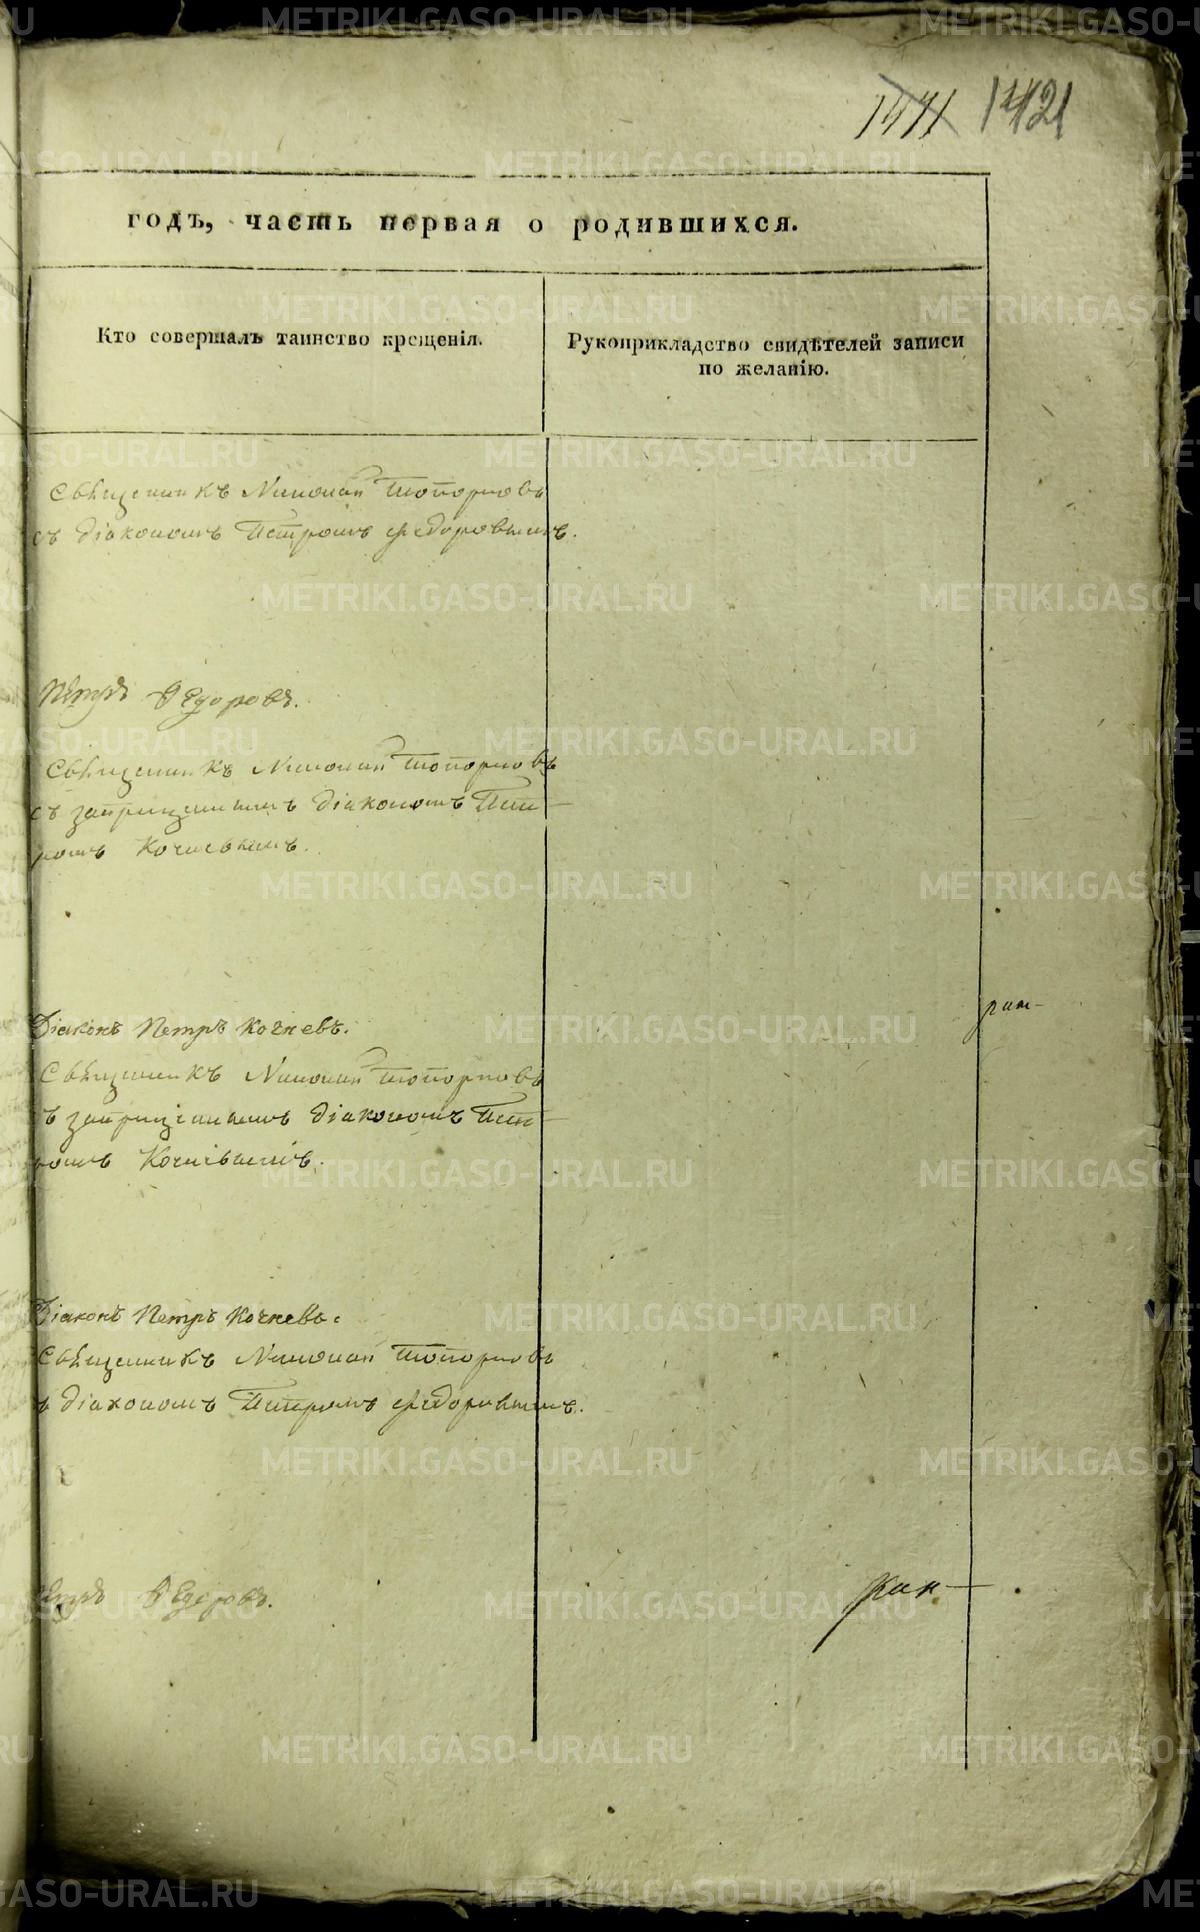 1421
годъ, часть первая о родившихся.
Кто совершалъ таинство крещенія.
Рукоприкладство свидѣтелей записи
по желанію.
Священникъ Николай Топорковъ
съ діакономъ Петромъ Федоровымъ.
Петръ Ѳедоровъ.
Священникъ Николай Топорковъ
съ запрещеннымъ діакономъ Пет-
ромъ Кочневымъ.
Діаконъ Петръ Кочневъ.
Священникъ Николай Топорковъ
ъ запрещеннымъ діакономъ Пет-
ромъ Кочневымъ.
Діаконъ Петръ Кочневъ.
Священникъ Николай Топорковъ
ъ діакономъ Петромъ Федоровымъ.
етръ Ѳедоровъ.
METRIKI.GASO-URAL.RU